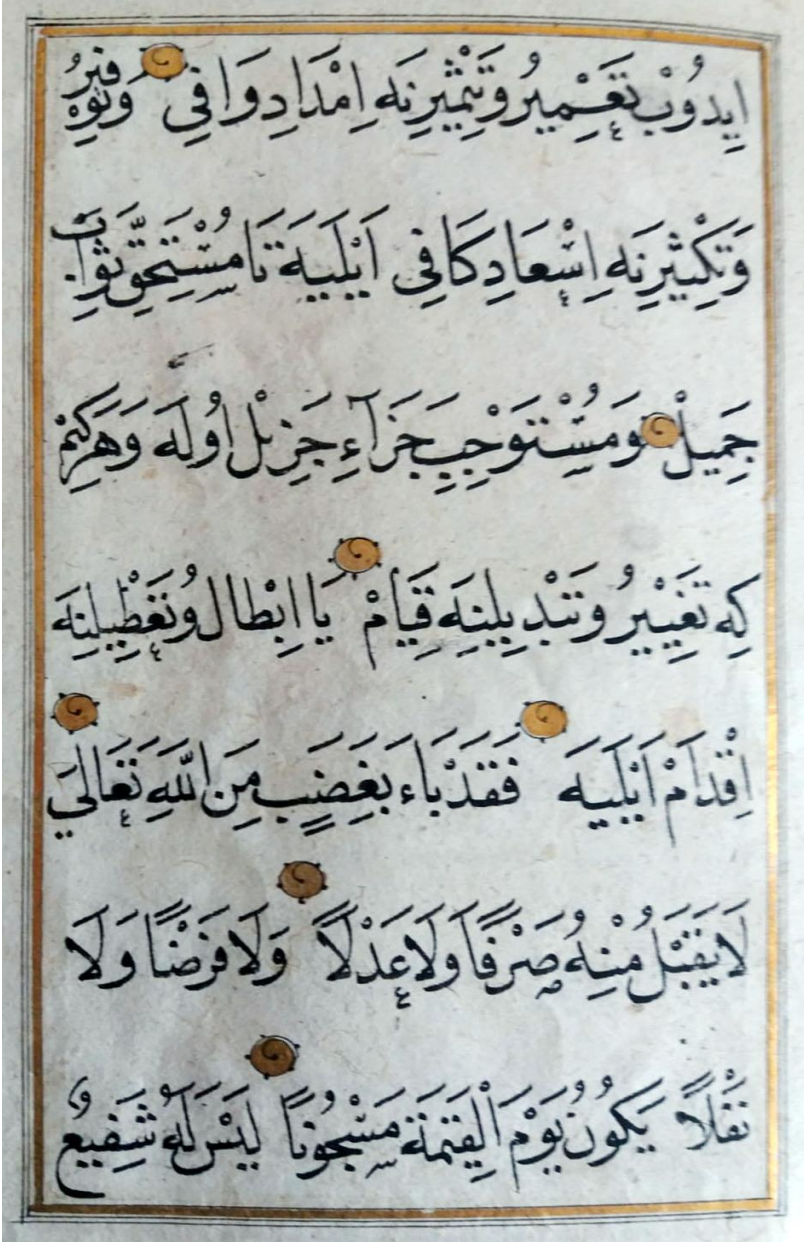 اِيدُوبْ تَعْمِيرُ وَتَثْمِيرِنَه اِمْدَادِ وَافِي وَتَوْفِيرُ
وَتَكْثِيرِنَه اِسْعَادِ كَافِي اَيْلَيَيَه تَا مُسْتَحِقِّ ثَوَابِ
جَمِيلْ وَمُسْتَوْجِبِ جَزَآءِ جَزِيلْ اُولَه وَهَرْكِمْ
كِه تَغْيِيرُ وَتَبْدِيلِنَه قِيَامْ يَا اِبْطَال وُتَعْطِيلِنَه
اِقْدَامْ اَيْلَيَه فَقَدْ بَاءَ بِغَضِبٍ مِنَ اللّٰهِ تَعَالَي
لَا يَقْبَلُ مِنْهُ صَرْفًا وَلَا عَدْلًا وَلَا فَرْضًا وَلَا
نَفْلًا يَكُونُ يَوْمَ الْقِيٰمَةِ مَسْجُونًا لَيْسَ لَهُ شَفِيعٌ